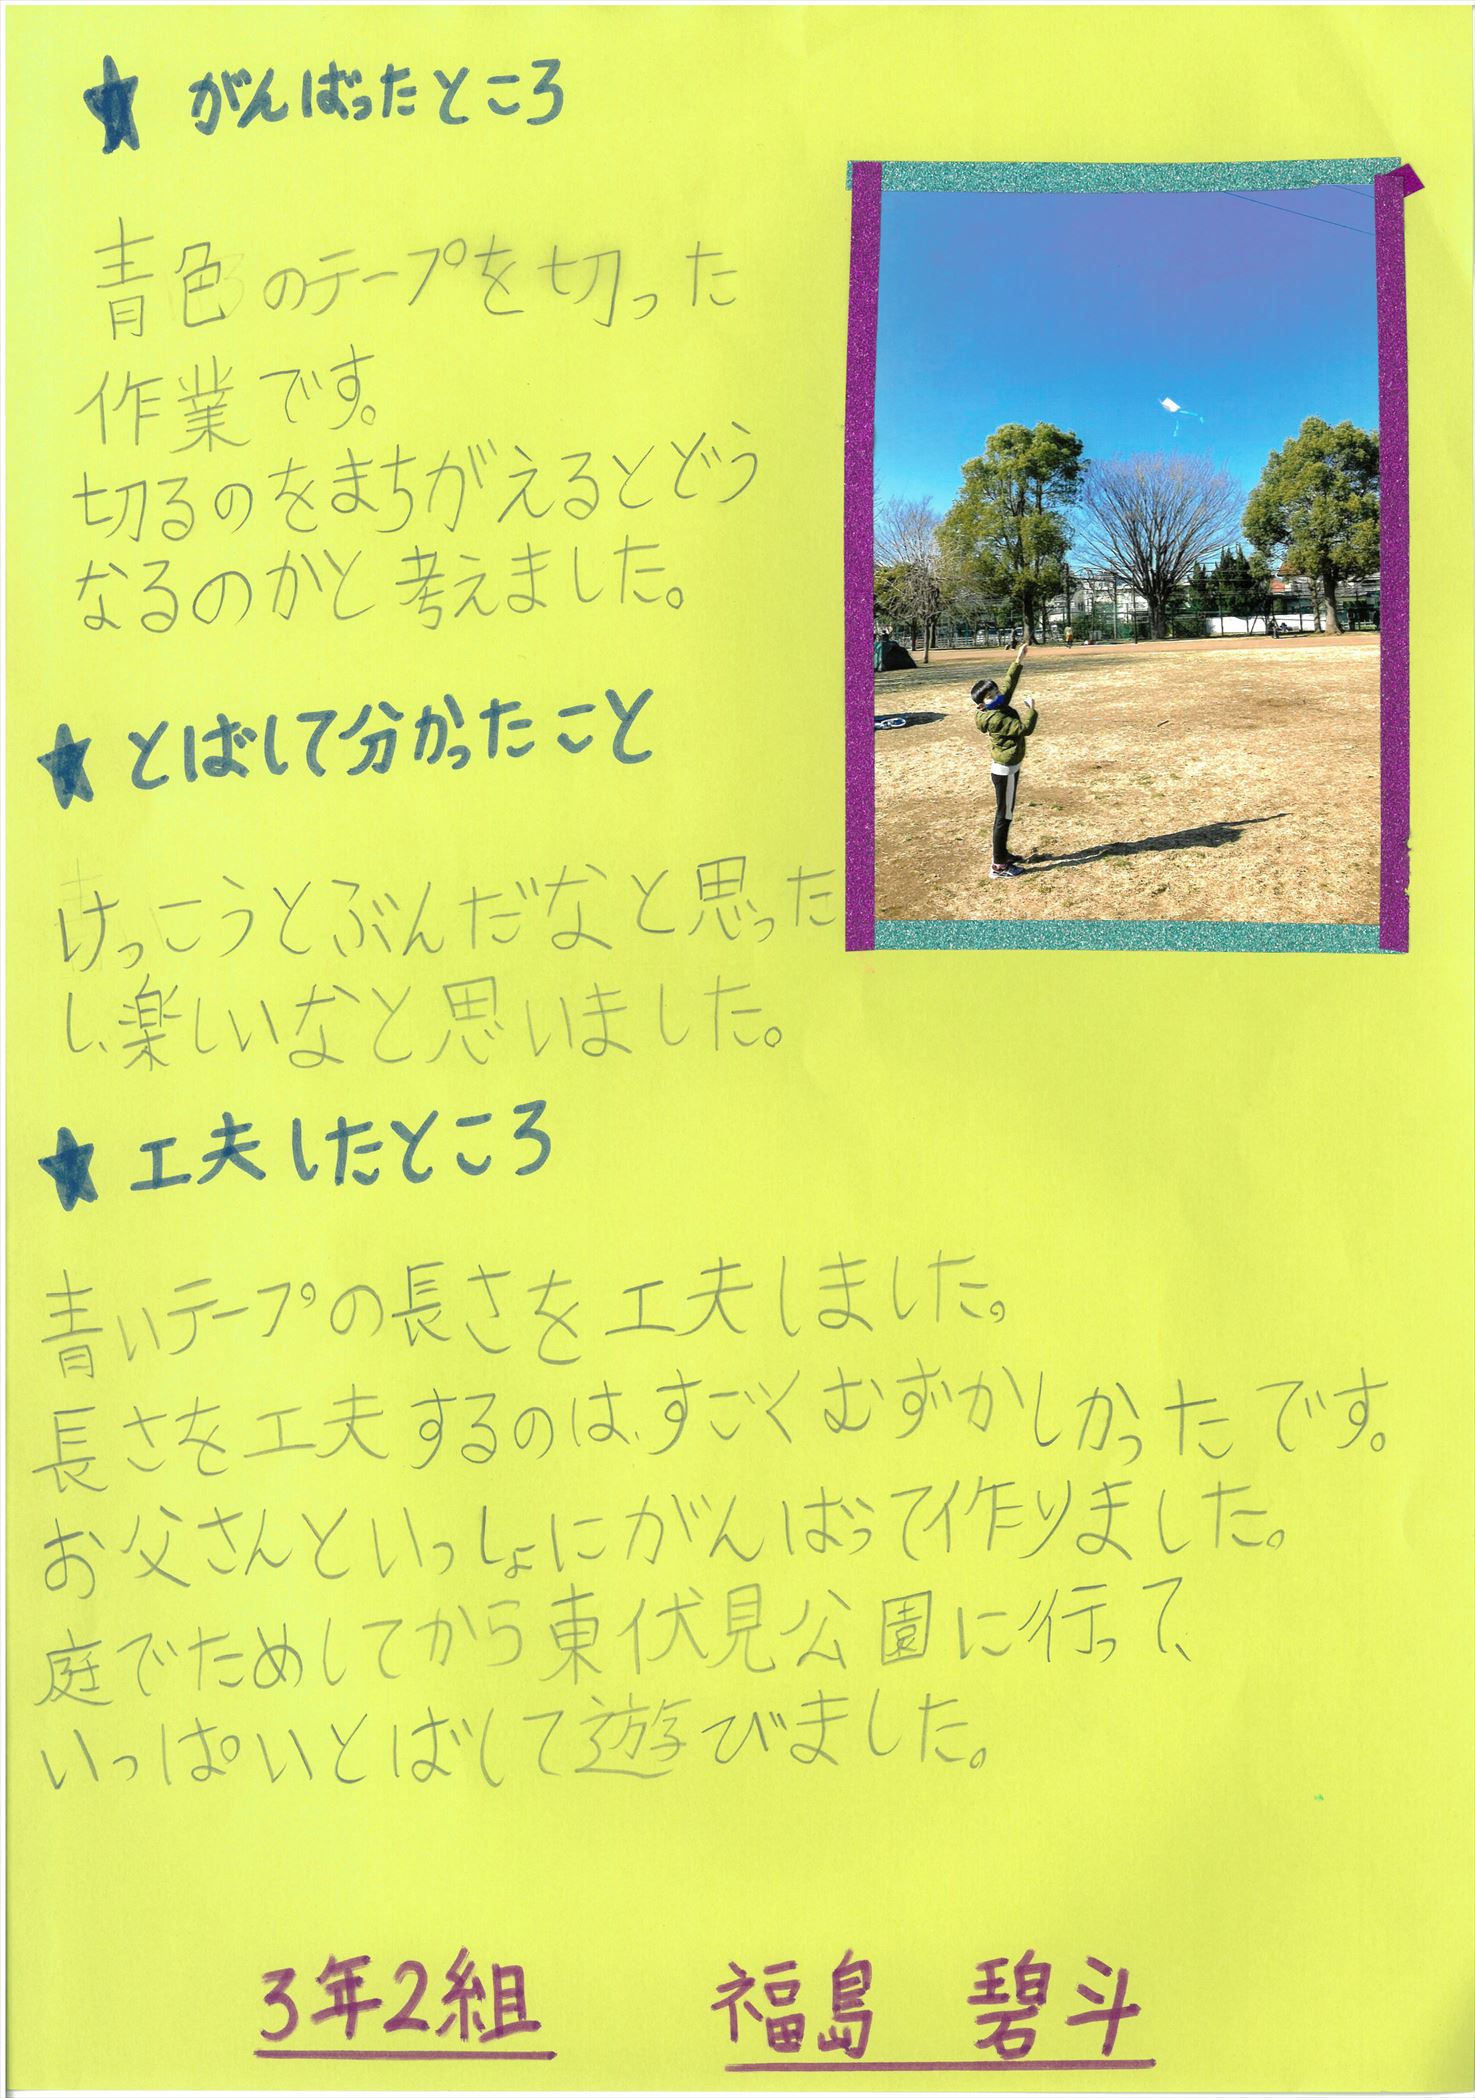 ★ がんばったところ
青色のテープを切った
作業です。
切るのをまちがえるとどう
なるのかと考えました。
★ とばして分かったこと
けっこうとぶんだなと思った
し、楽しいなと思いました。
★ 工夫したところ
青いテープの長さを工夫しました。
長さを工夫するのは、すごくむずかしかったです。
お父さんといっしょにがんばって作りました。
庭でためしてから東伏見公園に行って、
いっぱいとばして遊びました。
3年2組 福島 碧斗